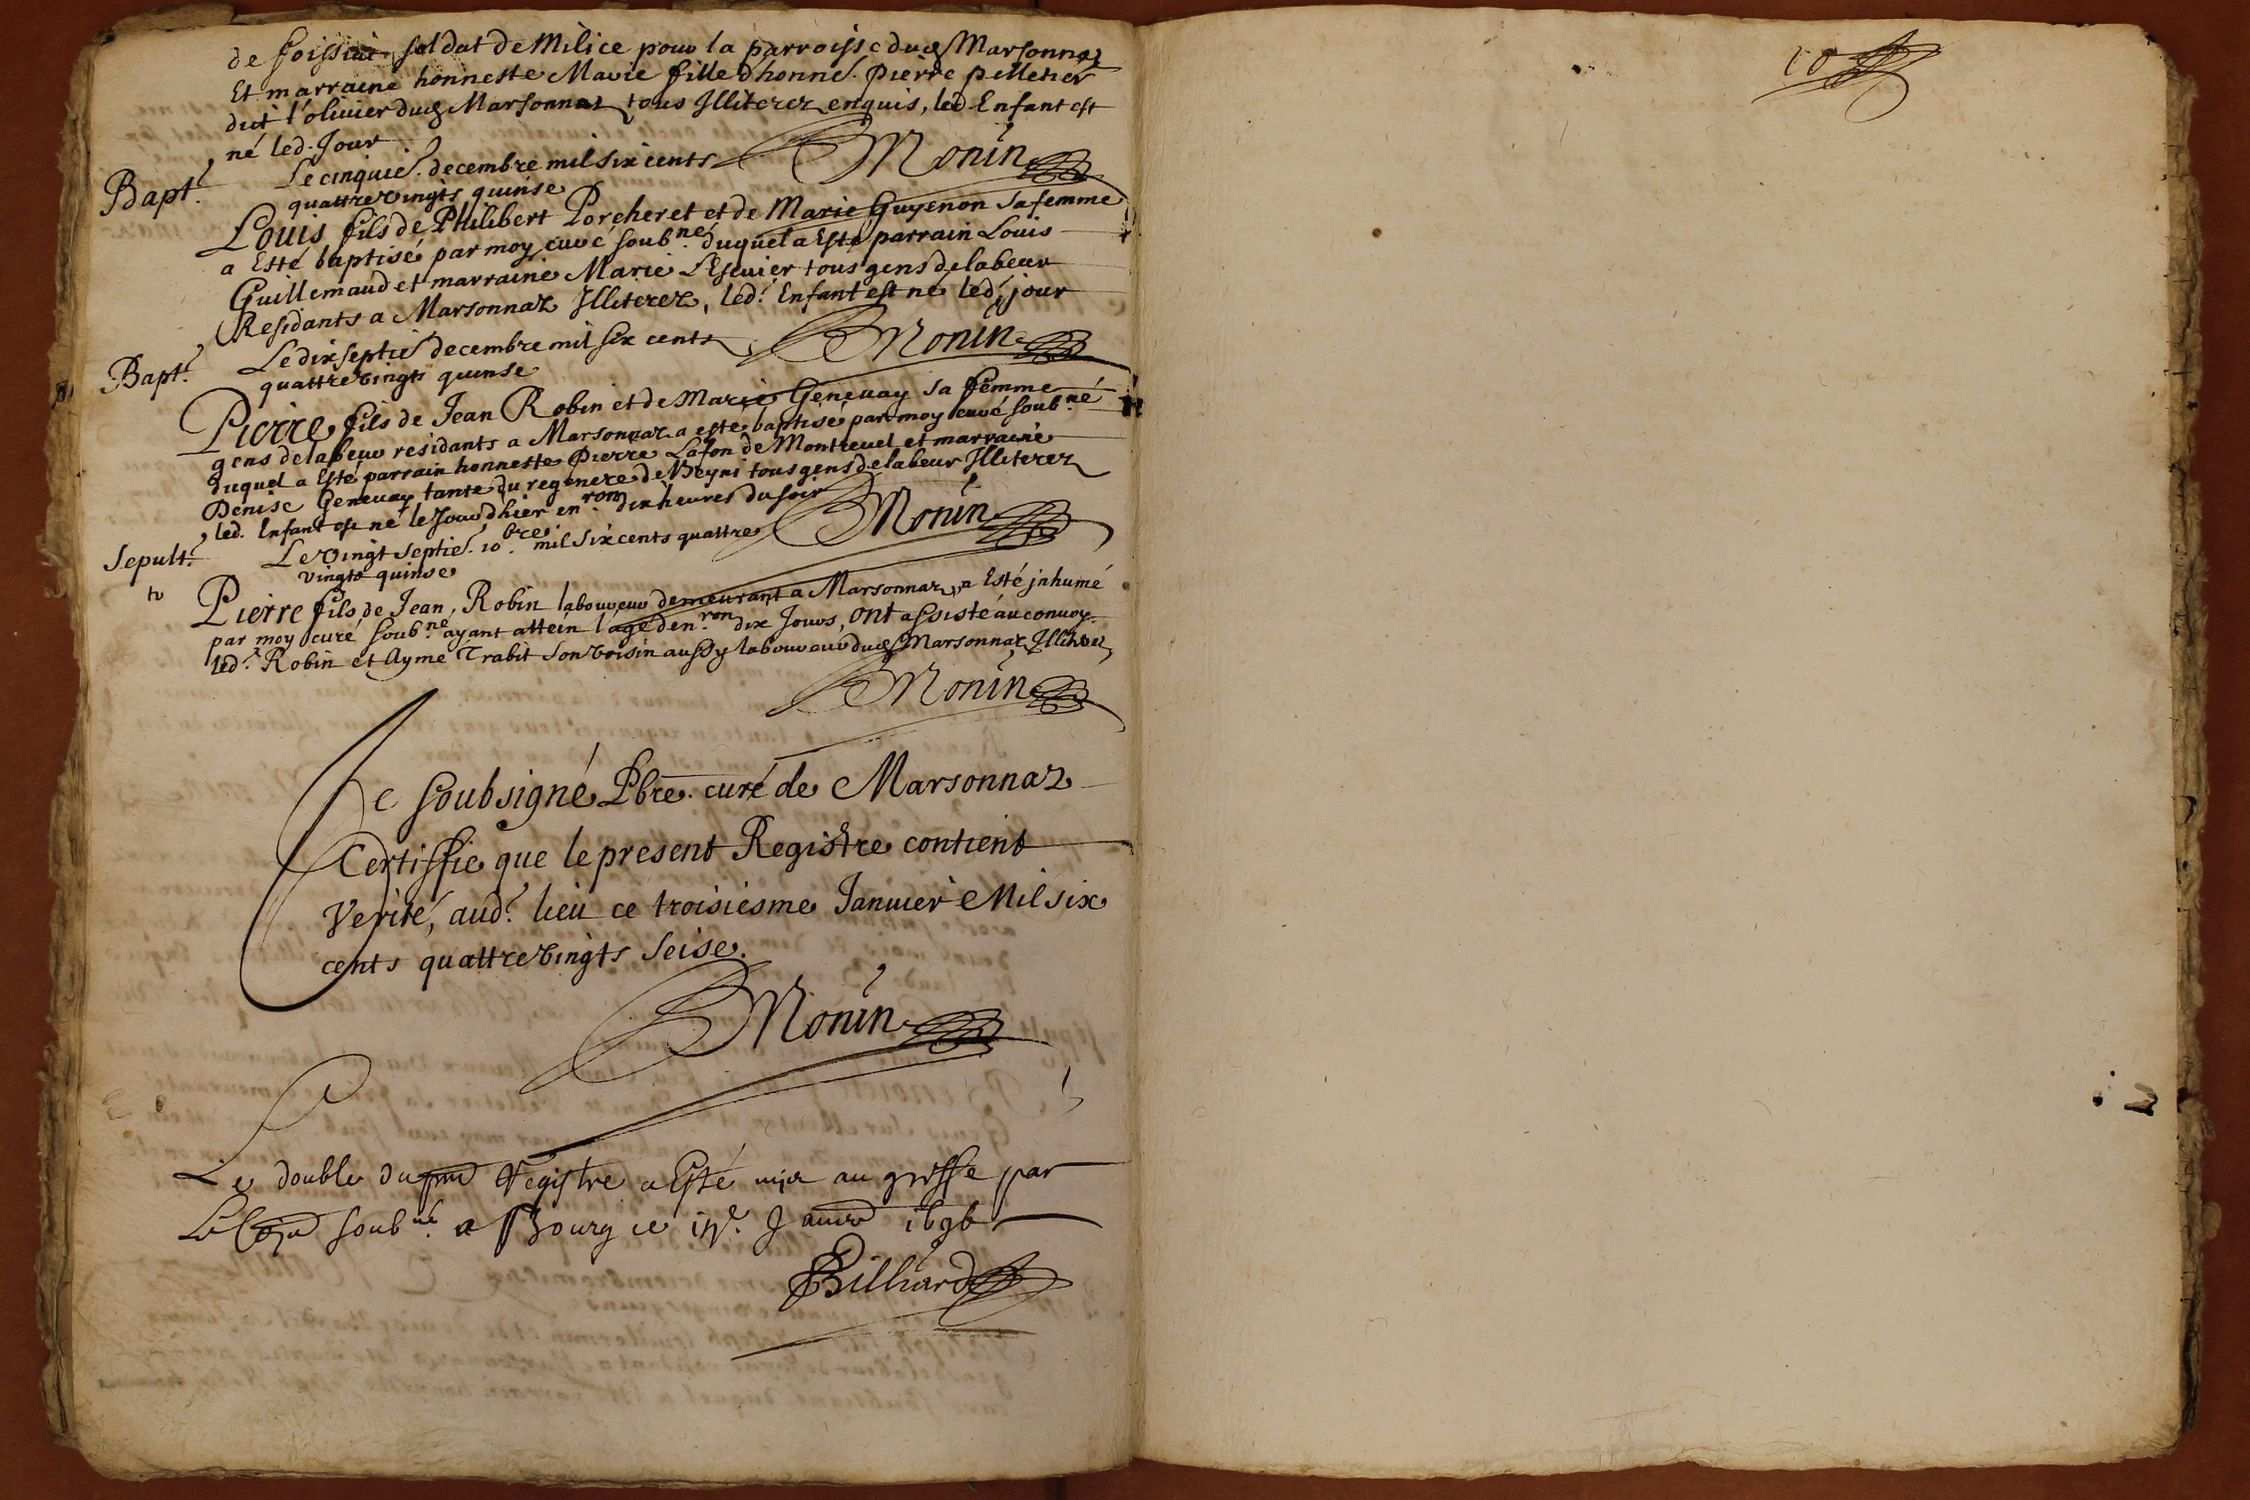 de foissiat soldat de Milice pour la parroisse dud Marsonnaz
Et marraine honneste Marie fille d'honne. pierre pelletier
dit l'olivier dud Marsonnaz tous Illiterez enquis, led. Enfant est
né led. Jour
Monin
Bapt.
Le cinquie. decembre mil six cents
quattre vingts quinse
Louis fils de Philibert Porcheret et de Marie Guyenon sa femme
a Esté baptisé par moy curé soub.né duquel a Esté parrain Louis
Guillemaud et marraine Marie Lescuier tous gens de labeur
Residants a Marsonnaz Illiterez, led. Enfant est né led. jour
Monin
Bapt.
Le dix septie decembre mil six cents
quattre vingts quinse
Pierre fils de Jean Robin et de Marie Genevay sa femme
gens de labeur residants a Marsonnaz a esté baptisé par moy curé soub.né
duquel a Esté parrain honneste Pierre Lafon de Montrevel et marraine
Denise Genevay tante du regeneré de Beyni tous gens de labeur Illiterez
led. Enfant est né le Jour d'hier en.ron dix heures du soir
Monin
Sepult.
Le vingt septie. 10.bre mil six cents quattre
vingts quinse
Pierre fils de Jean, Robin laboureur demeurant a Marsonnaz, a Esté jnhumé
par moy curé soub.né ayant attein l'age d'en.ron dix Jours, ont assisté au convoy
led. Robin et Aymé Trabit son voisin aussy laboureur dud Marsonnaz Illiterez
Monin
Je soubsigné Pbre. curé de Marsonnaz
Certiffie que le present Registre contient
Verité, aud. lieu ce troisiesme Janvier Mil six
cents quattre vingts seise.
Monin
Le double du pnt Registre a Esté mis au greffe par
Le soub.né a Bourg ce Janvier 1696
Billiard
10